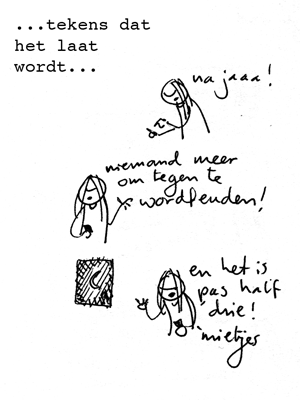 ...tekens dat
het laat
wordt...
na jaaa!
niemand meer
om tegen te
wordfeuden!
en het is
pas half
drie!
mietjes